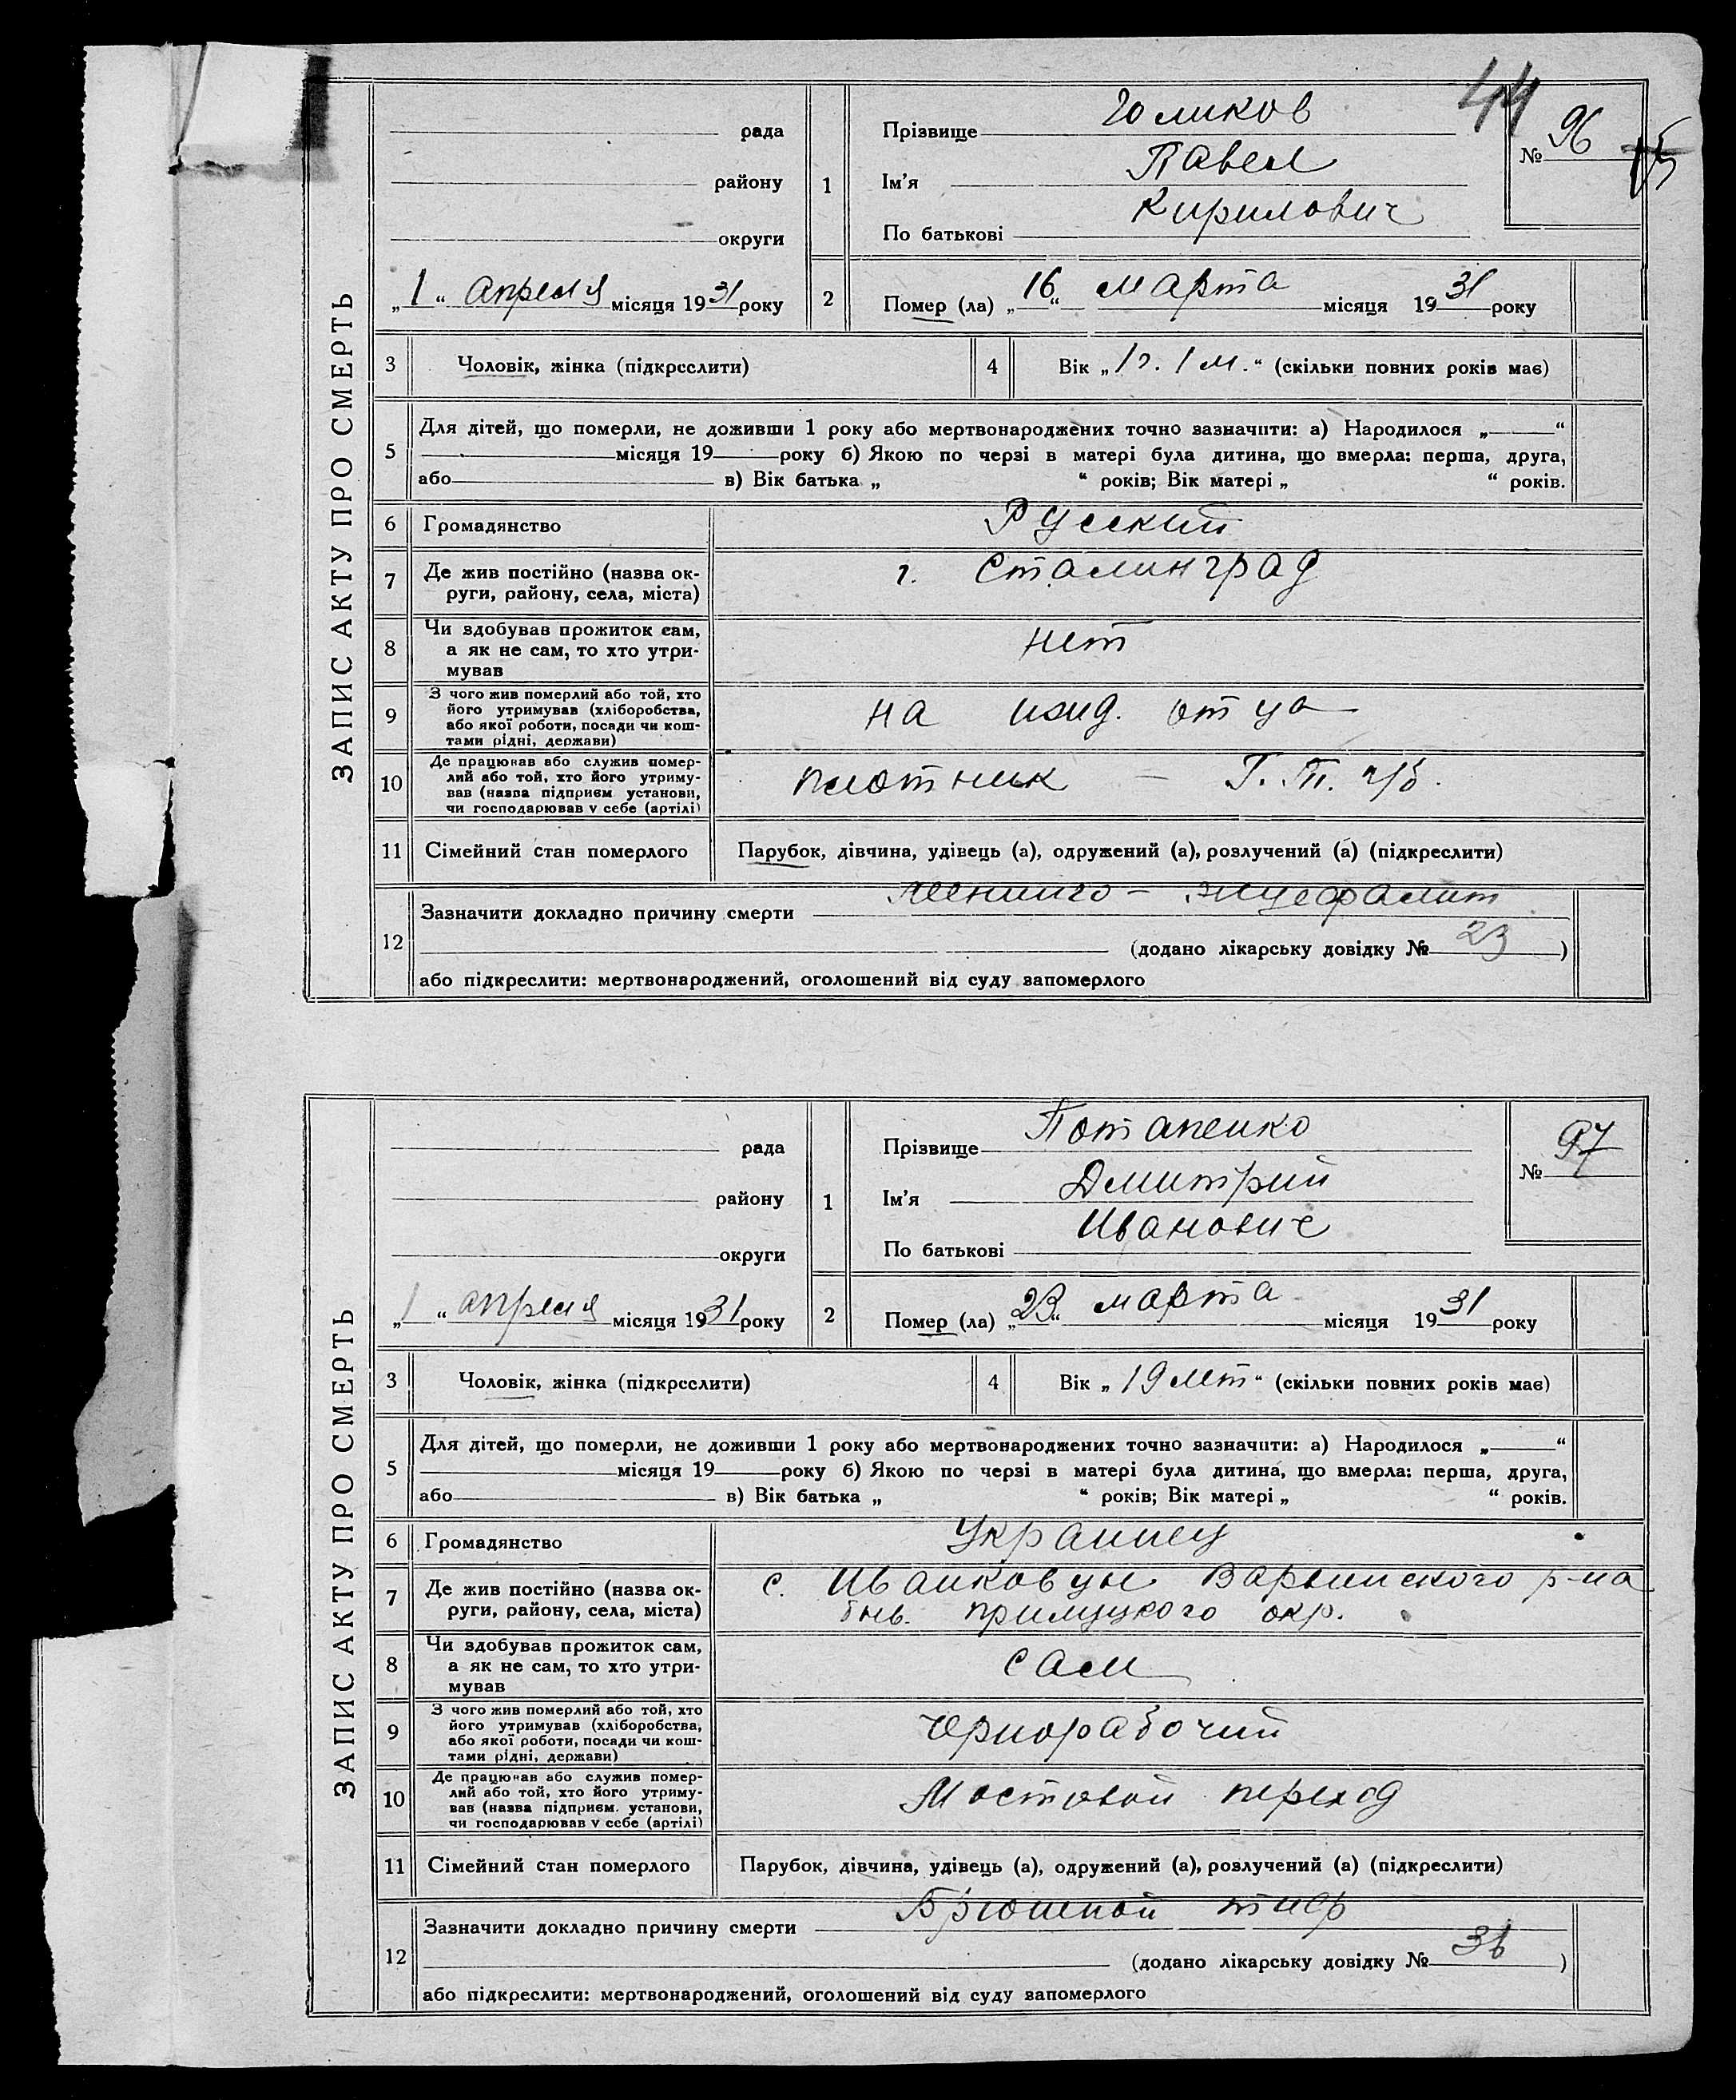 44
ЗАПИС АКТУ ПРО СМЕРТЬ
рада
району
округи
„1“ апреля місяця 1931 року
1 Прізвище Голиков
Ім'я Павел
По батькові Кирилович
№ 96
2 Помер (ла) „16“ марта місяця 1931 року
3 Чоловік, жінка (підкреслити)
4 Вік „1 г. 1 м.“ (скільки повних років має)
5 Для дітей, що померли, не доживши 1 року або мертвонароджених точно зазначити: а) Народилося „ “
місяця 19 року б) Якою по черзі в матері була дитина, що вмерла: перша, друга,
або в) Вік батька „ “ років; Вік матері „ “ років.
6 Громадянство Русский
7 Де жив постійно (назва ок-
руги, району, села, міста) г. Сталинград
8 Чи здобував прожиток сам,
а як не сам, то хто утри-
мував нет
9 З чого жив померлий або той, хто
його утримував (хліборобства,
або якої роботи, посади чи кош-
тами рідні, держави) на ижд. отца
10 Де працював або служив помер-
лий або той, хто його утриму-
вав (назва підприєм. установи,
чи господарював у себе (артілі) плотник – Г. П.
11 Сімейний стан померлого Парубок, дівчина, удівець (а), одружений (а), розлучений (а) (підкреслити)
12 Зазначити докладно причину смерти менинго – энцефалит
(додано лікарську довідку № 23)
або підкреслити: мертвонароджений, оголошений від суду запомерлого
ЗАПИС АКТУ ПРО СМЕРТЬ
рада
району
округи
„1“ апреля місяця 1931 року
1 Прізвище Потапенко
Ім'я Дмитрий
По батькові Иванович
№ 97
2 Помер (ла) „23“ марта місяця 1931 року
3 Чоловік, жінка (підкреслити)
4 Вік „19 лет“ (скільки повних років має)
5 Для дітей, що померли, не доживши 1 року або мертвонароджених точно зазначити: а) Народилося „ “
місяця 19 року б) Якою по черзі в матері була дитина, що вмерла: перша, друга,
або в) Вік батька „ “ років; Вік матері „ “ років.
6 Громадянство Украинец
7 Де жив постійно (назва ок-
руги, району, села, міста) с. Иванковцы Варвинского р-на
быв. прилуцкого окр.
8 Чи здобував прожиток сам,
а як не сам, то хто утри-
мував сам
9 З чого жив померлий або той, хто
його утримував (хліборобства,
або якої роботи, посади чи кош-
тами рідні, держави) чернорабочий
10 Де працював або служив помер-
лий або той, хто його утриму-
вав (назва підприєм. установи,
чи господарював у себе (артілі) Мостовой переход
11 Сімейний стан померлого Парубок, дівчина, удівець (а), одружений (а), розлучений (а) (підкреслити)
12 Зазначити докладно причину смерти Брюшной тиф
(додано лікарську довідку № 36)
або підкреслити: мертвонароджений, оголошений від суду запомерлого